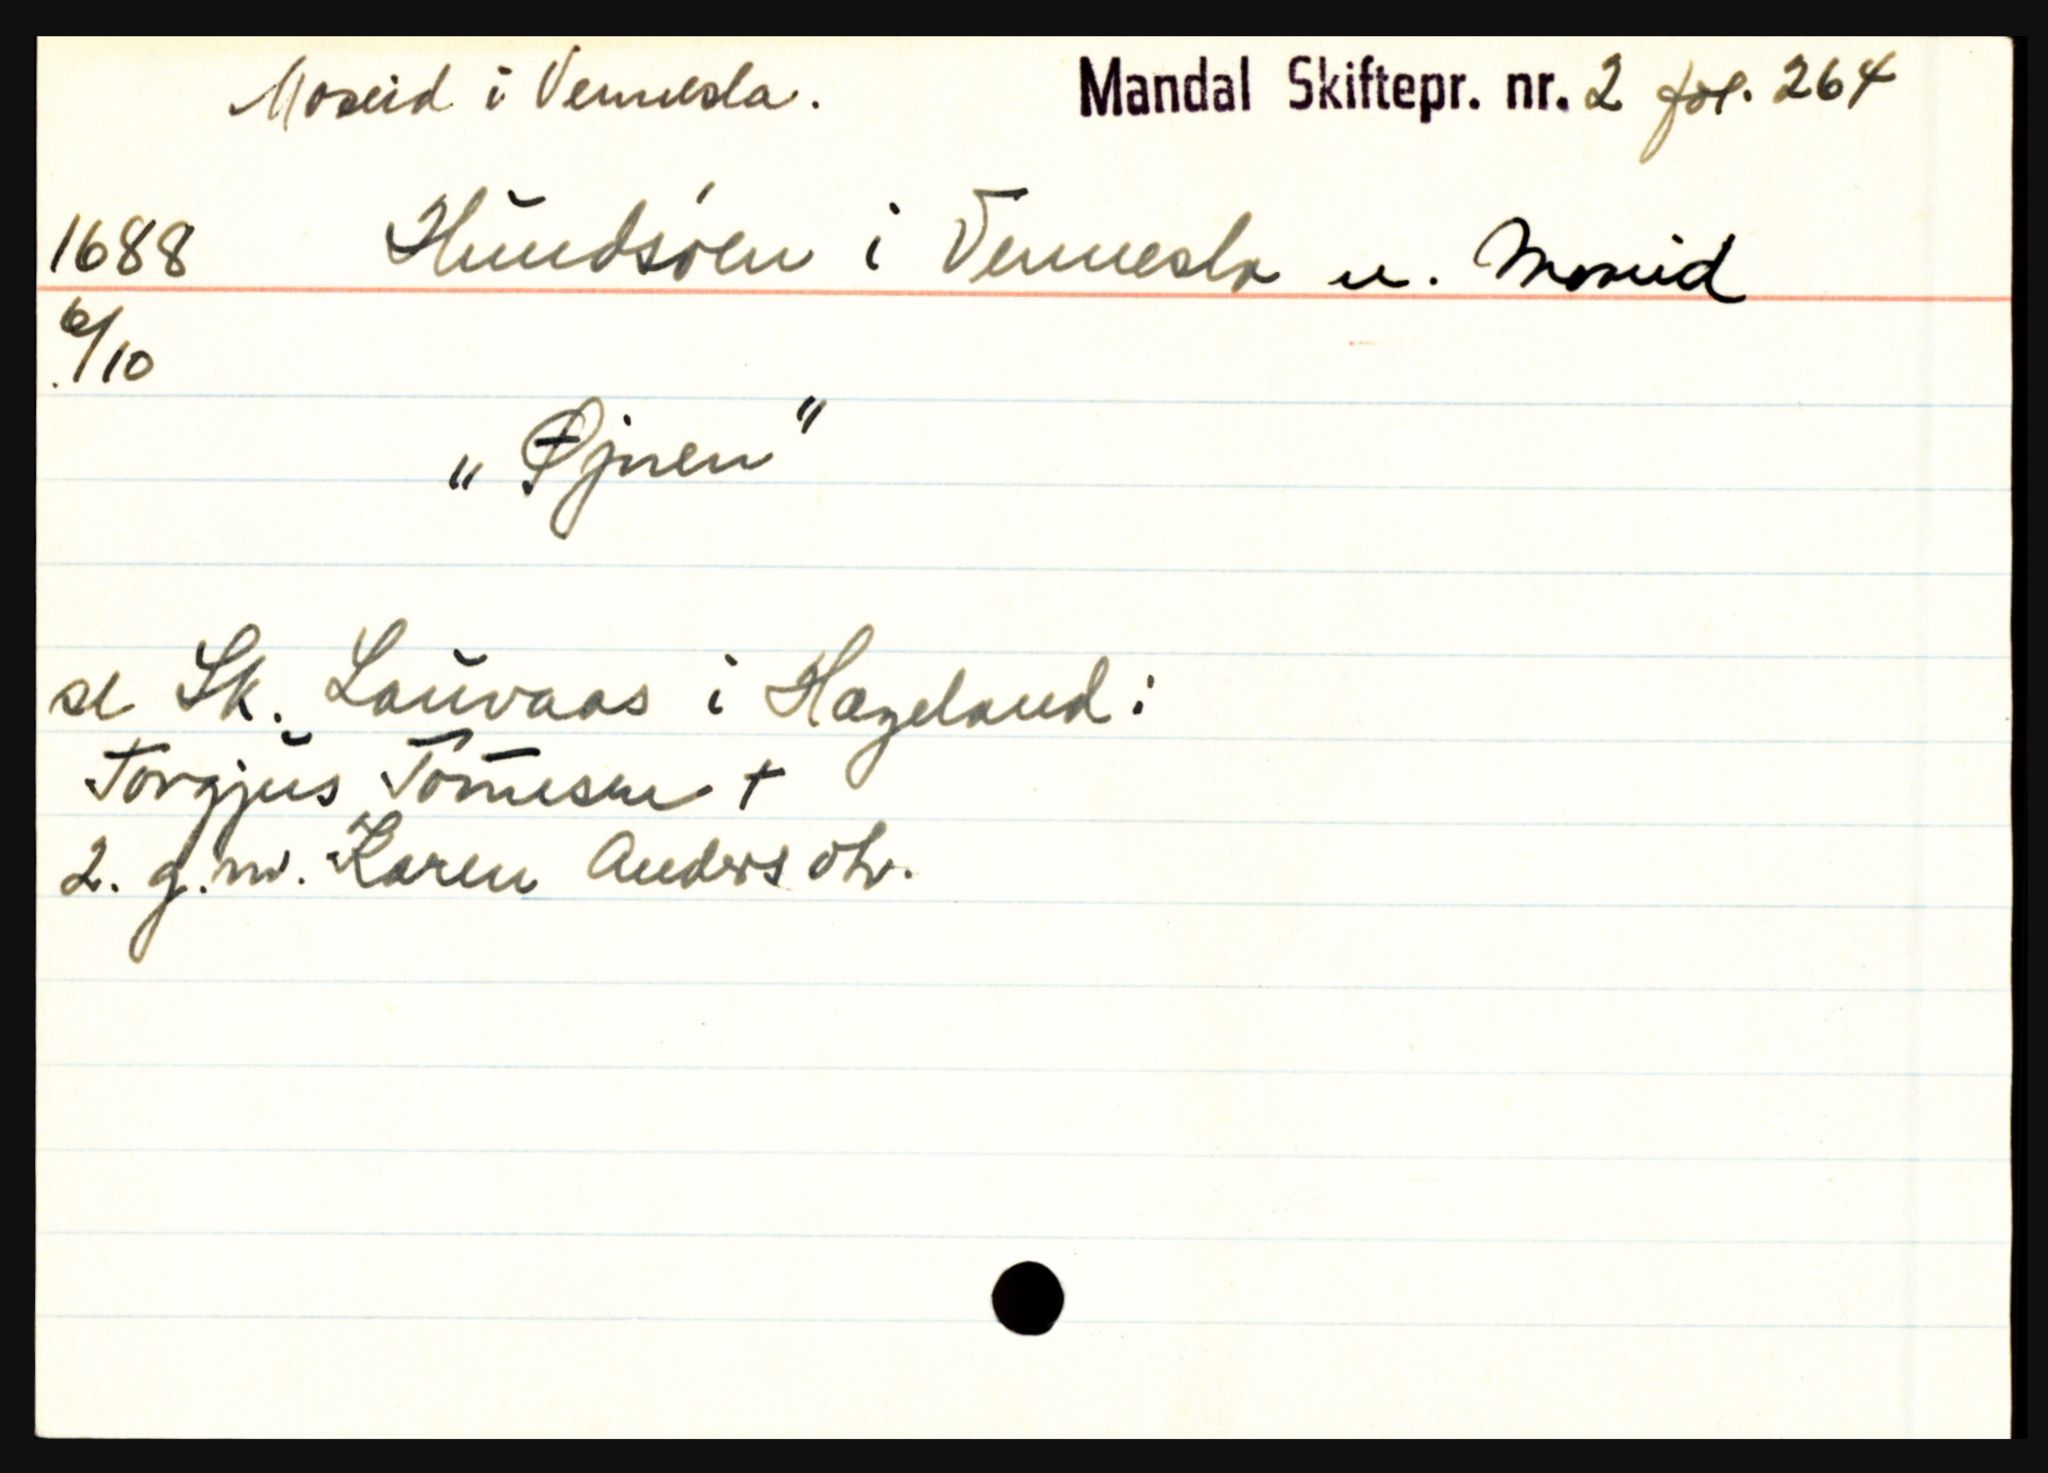 Moseid i Vennesla. Mandal Skiftepr. nr. 2 fol. 264
1688 Hundsøen i Vennesla u. Moseid
6/10
„Øjnen"
se Sk. Lauvaas i Hægeland:
Torgjus Tomesen +
2. g.m. Karen Anders dtr.